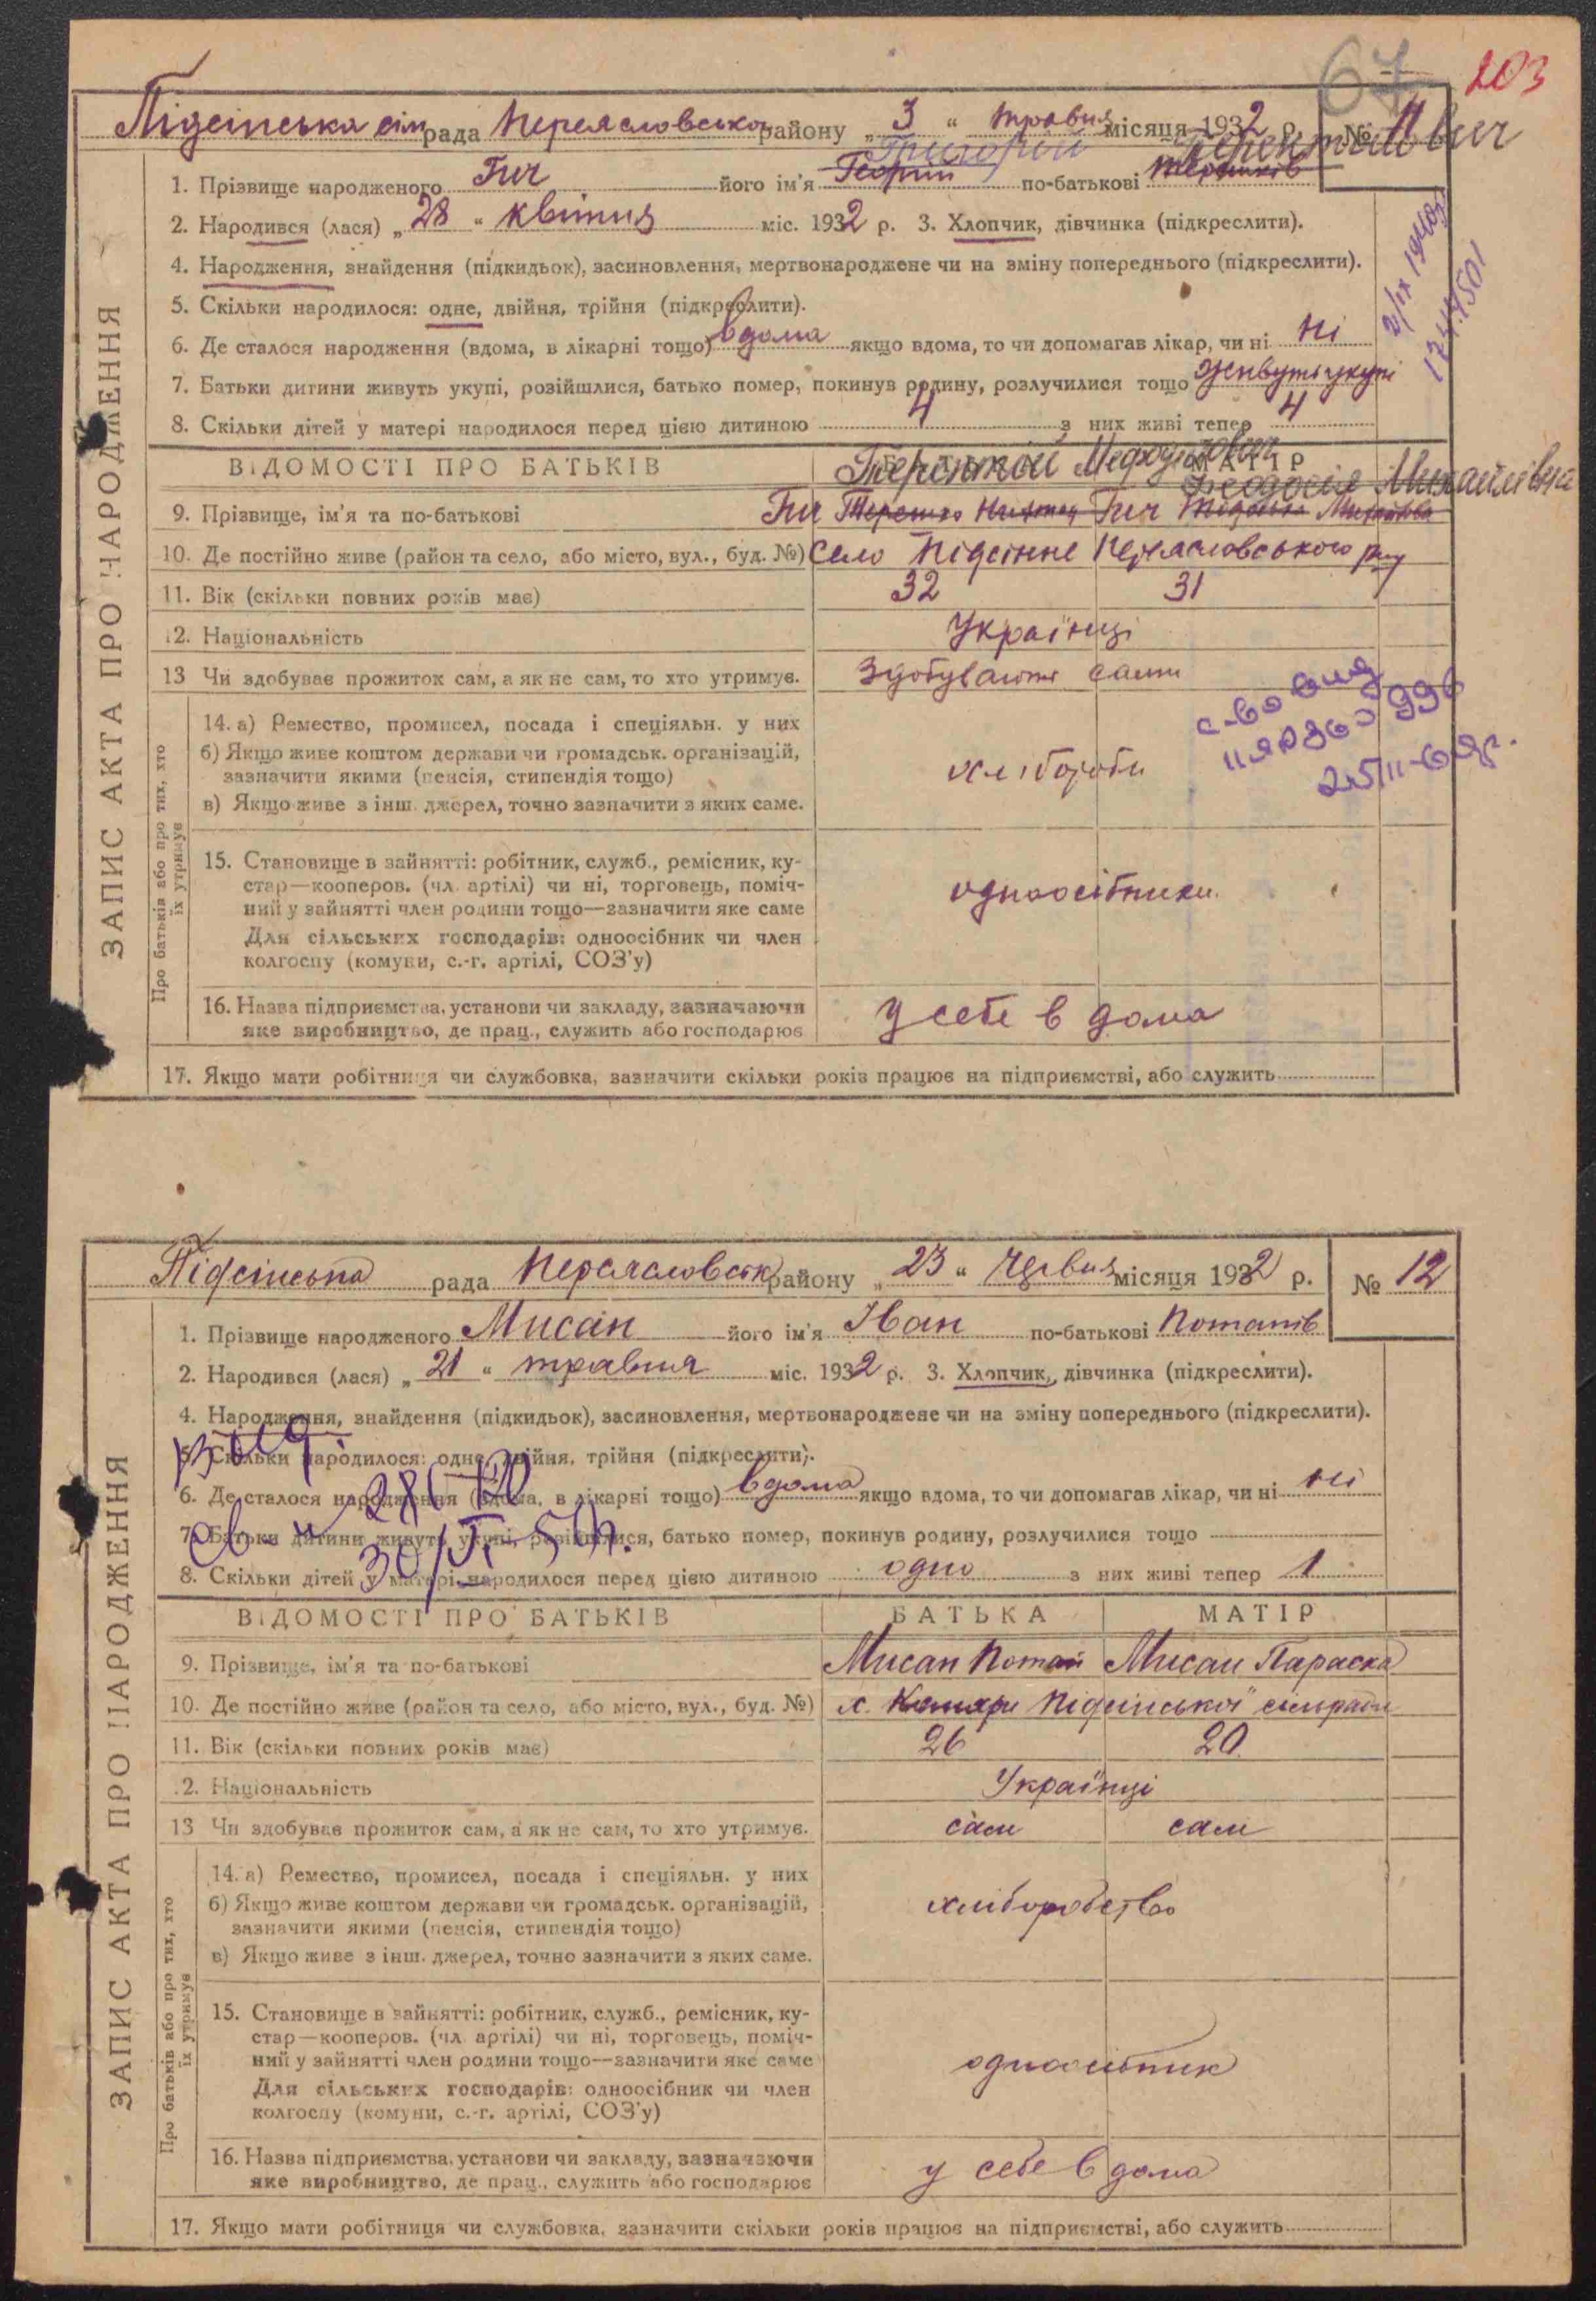 67 203
Підсінська сільрада Переясловського району „3“ травня місяця 1932 р. № 11
Григорій Терентійович
1. Прізвище народженого Гич його ім'я Георгій по-батькові Терешків
2. Народився (лася) „28“ квітня міс. 1932 р. 3. Хлопчик, дівчинка (підкреслити).
4. Народження, знайдення (підкидьок), засиновлення, мертвонароджене чи на зміну попереднього (підкреслити).
5. Скільки народилося: одне, двійня, трійня (підкреслити).
6. Де сталося народження (вдома, в лікарні тощо) вдома якщо вдома, то чи допомагав лікар, чи ні ні
7. Батьки дитини живуть укупі, розійшлися, батько помер, покинув родину, розлучилися тощо живуть укупі
8. Скільки дітей у матері народилося перед цією дитиною 4 з них живі тепер 4
ВІДОМОСТІ ПРО БАТЬКІВ МАТІР
Терентій Мефодійович Феодосія Михайлівна
9. Прізвище, ім'я та по-батькові Гич Терешко Гич
10. Де постійно живе (район та село, або місто, вул., буд. №) село Підсінне Переяславського р-ну
11. Вік (скільки повних років має) 32 31
12. Національність Українці
13 Чи здобуває прожиток сам, а як не сам, то хто утримує. Здобувають сами
14. а) Ремество, промисел, посада і спеціяльн. у них
б) Якщо живе коштом держави чи громадськ. організацій,
зазначити якими (пенсія, стипендія тощо) хлібороби
в) Якщо живе з інш. джерел, точно зазначити з яких саме.
с-во выд
15. Становище в зайнятті: робітник, служб., ремісник, ку-
стар—кооперов. (чл. артілі) чи ні, торговець, поміч-
ний у зайнятті член родини тощо—зазначити яке саме одноосібники.
Для сільських господарів: одноосібник чи член
колгоспу (комуни, с.-г. артілі, СОЗ'у)
16. Назва підприємства, установи чи закладу, зазначаючи
яке виробництво, де прац., служить або господарює у себе в дома
17. Якщо мати робітниця чи службовка, зазначити скільки років працює на підприємстві, або служить
Про батьків або про тих, хто
їх утримує
ЗАПИС АКТА ПРО НАРОДЖЕННЯ
Підсінська рада Переясловськ району „23“ червня місяця 1932 р. № 12
1. Прізвище народженого Мисан його ім'я Іван по-батькові Потапів
2. Народився (лася) „21“ травня міс. 1932 р. 3. Хлопчик, дівчинка (підкреслити).
4. Народження, знайдення (підкидьок), засиновлення, мертвонароджене чи на зміну попереднього (підкреслити).
5. Скільки народилося: одне, двійня, трійня (підкреслити).
6. Де сталося народження (вдома, в лікарні тощо) вдома якщо вдома, то чи допомагав лікар, чи ні ні
7. Батьки дитини живуть укупі, розійшлися, батько помер, покинув родину, розлучилися тощо
8. Скільки дітей у матері народилося перед цією дитиною одно з них живі тепер 1
ВІДОМОСТІ ПРО БАТЬКІВ БАТЬКА МАТІР
9. Прізвище, ім'я та по-батькові Мисан Потап Мисан Параска
10. Де постійно живе (район та село, або місто, вул., буд. №) х. Підсінської сільради
11. Вік (скільки повних років має) 26 20
12. Національність Українці
13 Чи здобуває прожиток сам, а як не сам, то хто утримує. сам сам
14. а) Ремество, промисел, посада і спеціяльн. у них
б) Якщо живе коштом держави чи громадськ. організацій,
зазначити якими (пенсія, стипендія тощо) хліборобство
в) Якщо живе з інш. джерел, точно зазначити з яких саме.
15. Становище в зайнятті: робітник, служб., ремісник, ку-
стар—кооперов. (чл. артілі) чи ні, торговець, поміч-
ний у зайнятті член родини тощо—зазначити яке саме одноосібник
Для сільських господарів: одноосібник чи член
колгоспу (комуни, с.-г. артілі, СОЗ'у)
16. Назва підприємства, установи чи закладу, зазначаючи
яке виробництво, де прац., служить або господарює у себе в дома
17. Якщо мати робітниця чи службовка, зазначити скільки років працює на підприємстві, або служить
Про батьків або про тих, хто
їх утримує
ЗАПИС АКТА ПРО НАРОДЖЕННЯ